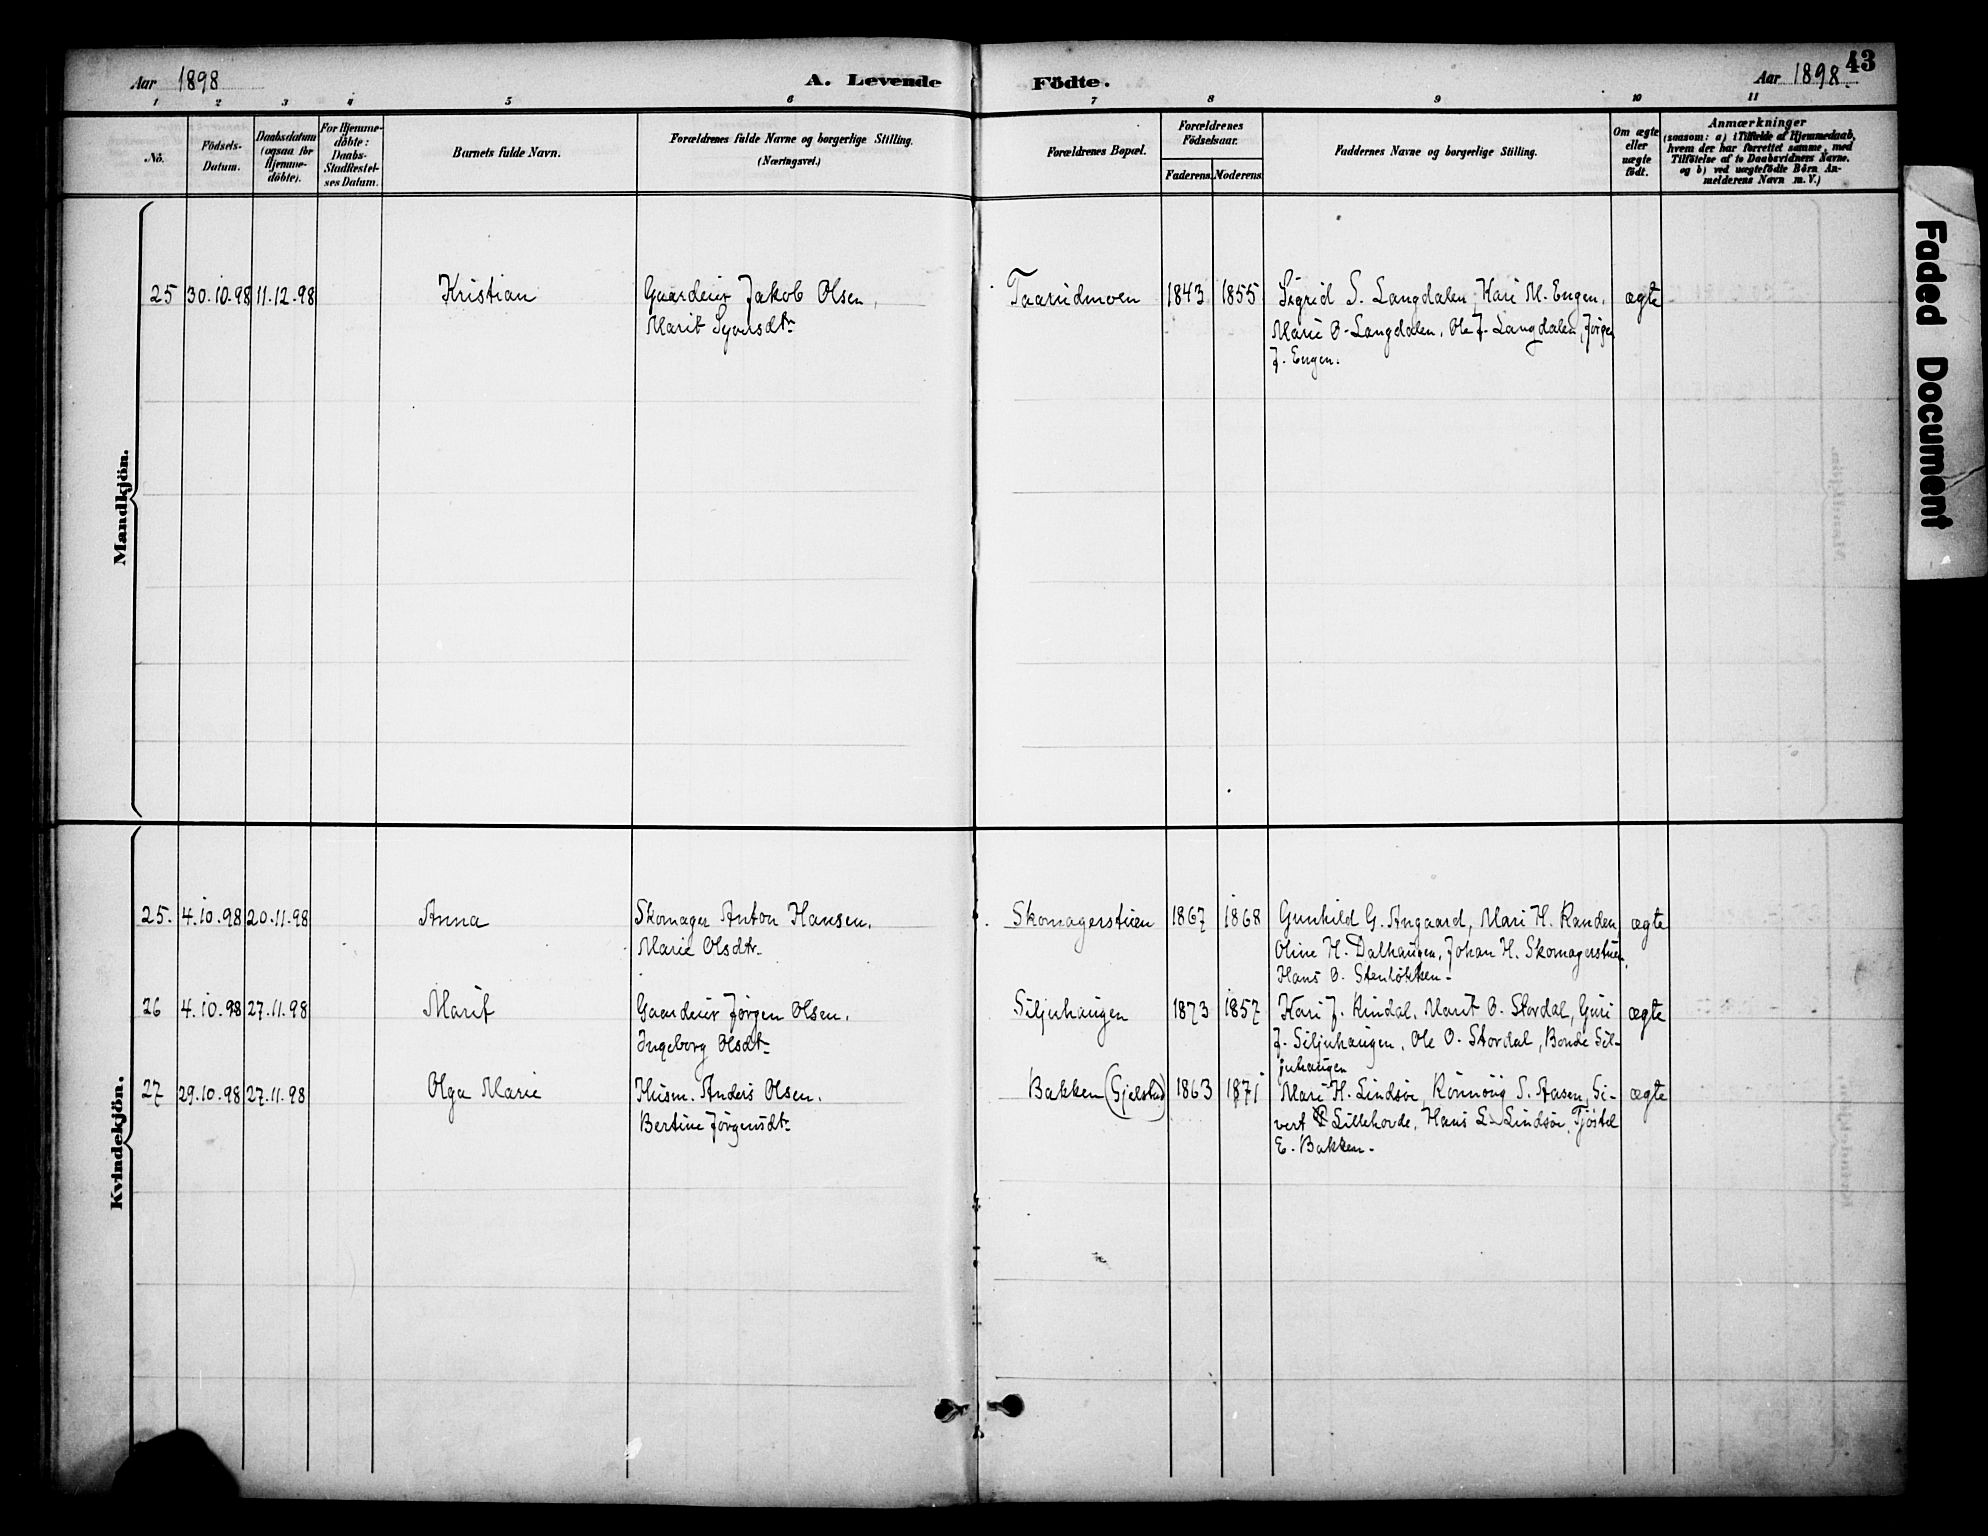 43
Aar 1898
A. Levende Födte.
Aar 1898
1 2 3 4 5 6 7 8 9 10 11
No.
Födsels-
Datum.
Daabsdatum
(ogsaa for
Hjemme-
döbte).
For Hjemme-
döbte:
Daabs-
Stadfestel-
ses Datum.
Barnets fulde Navn.
Forældrenes fulde Navne og borgerlige Stilling.
(Næringsvei.)
Forældrenes Bopæl.
Forældrenes
Födselsaar.
Faderens. Moderens.
Faddernes Navne og borgerlige Stilling.
Om ægte
eller
uægte
födt.
Anmærkninger
(saasom: a) i Tilfælde af Hjemmedaab,
hvem der har forrettet samme, med
Tilföielse af to Daabsvidners Navne.
og b) ved uægtefödte Börn An-
melderens Navn m. V.)
Mandkjön.
25 30.10.98 11.12.98 Kristian Gaardeier Jakob Olsen, Taarudmoen 1843 1855 Sigrid S. Langdalen, Kari M. Engen, ægte
Marit Syversdtr. Marie O. Langdalen, Ole J. Langdalen, Jørgen
J. Engen.
Kvindekjön.
25. 4.10.98 20.11.98 Anna Skomager Anton Hansen, Skomagerstuen 1867 1868 Gunhild G. Angaard, Mari H. Randen, ægte
Marie Olsdtr. Oline H. Dalhaugen, Johan H. Skomagerstuen,
Hans O. Stenløkken.
26 4.10.98 27.11.98 Marit Gaardeier Jørgen Olsen, Siljuhaugen 1873 1857 Kari J. Rindal, Marit O. Stordal, Guri ægte
Ingeborg Olsdtr. J. Siljuhaugen, Ole O. Stordal, Bonde Sil-
juhaugen
27 29.10.98 27.11.98 Olga Marie Husm. Anders Olsen, Bakken (Gjelstad) 1863 1871 Mari H. Lindsøe, Rønnøug S. Aasen, Si- ægte
Bertine Jørgensdtr. vert Lillehovde, Hans L. Lindsøe, Tjøstel
E. Bakken.
Faded Document